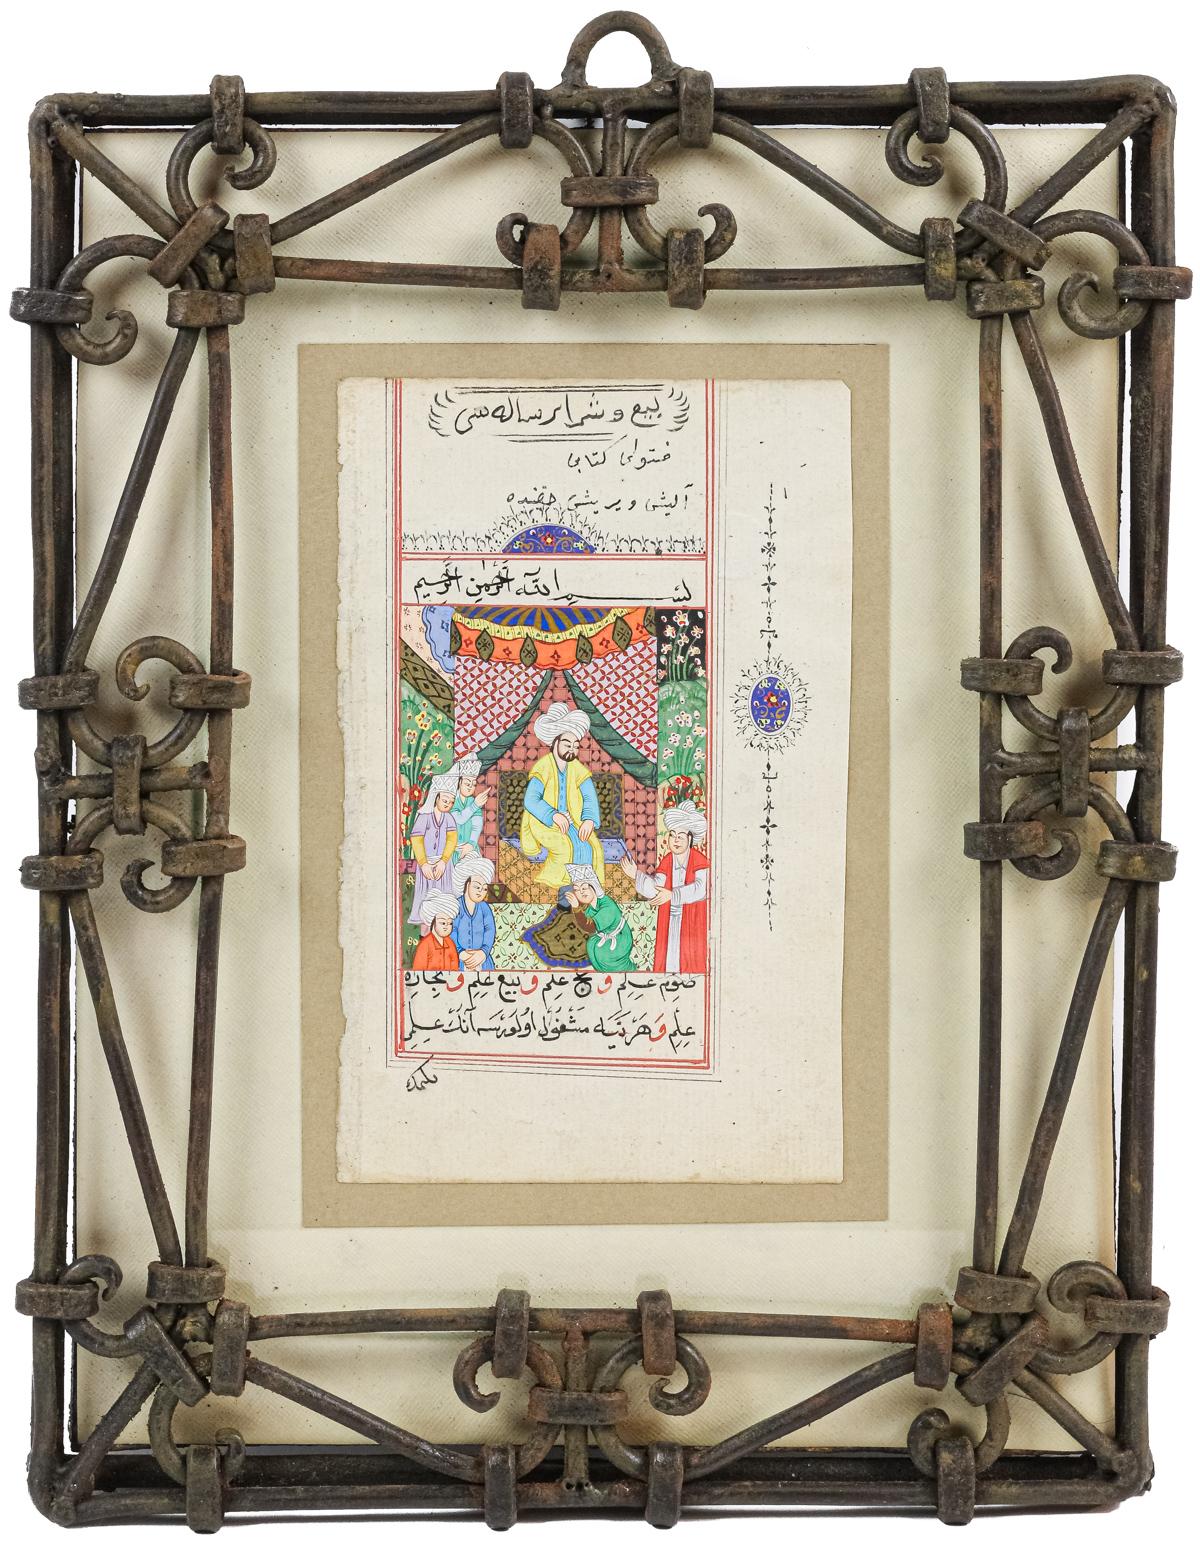 بيع و شرا رساله سى
فتواى كتابى
آليش ويريش حقنده
بِسْمِ اللّٰهِ الرَّحْمٰنِ الرَّحِيمِ
صَوْم عِلمِ و حج عِلمِ و بيع عِلمِ و تِجارة
عِلمِ و هَر نَيَه مَشغُول اولُورسَه آنك عِلمِ
بلمك